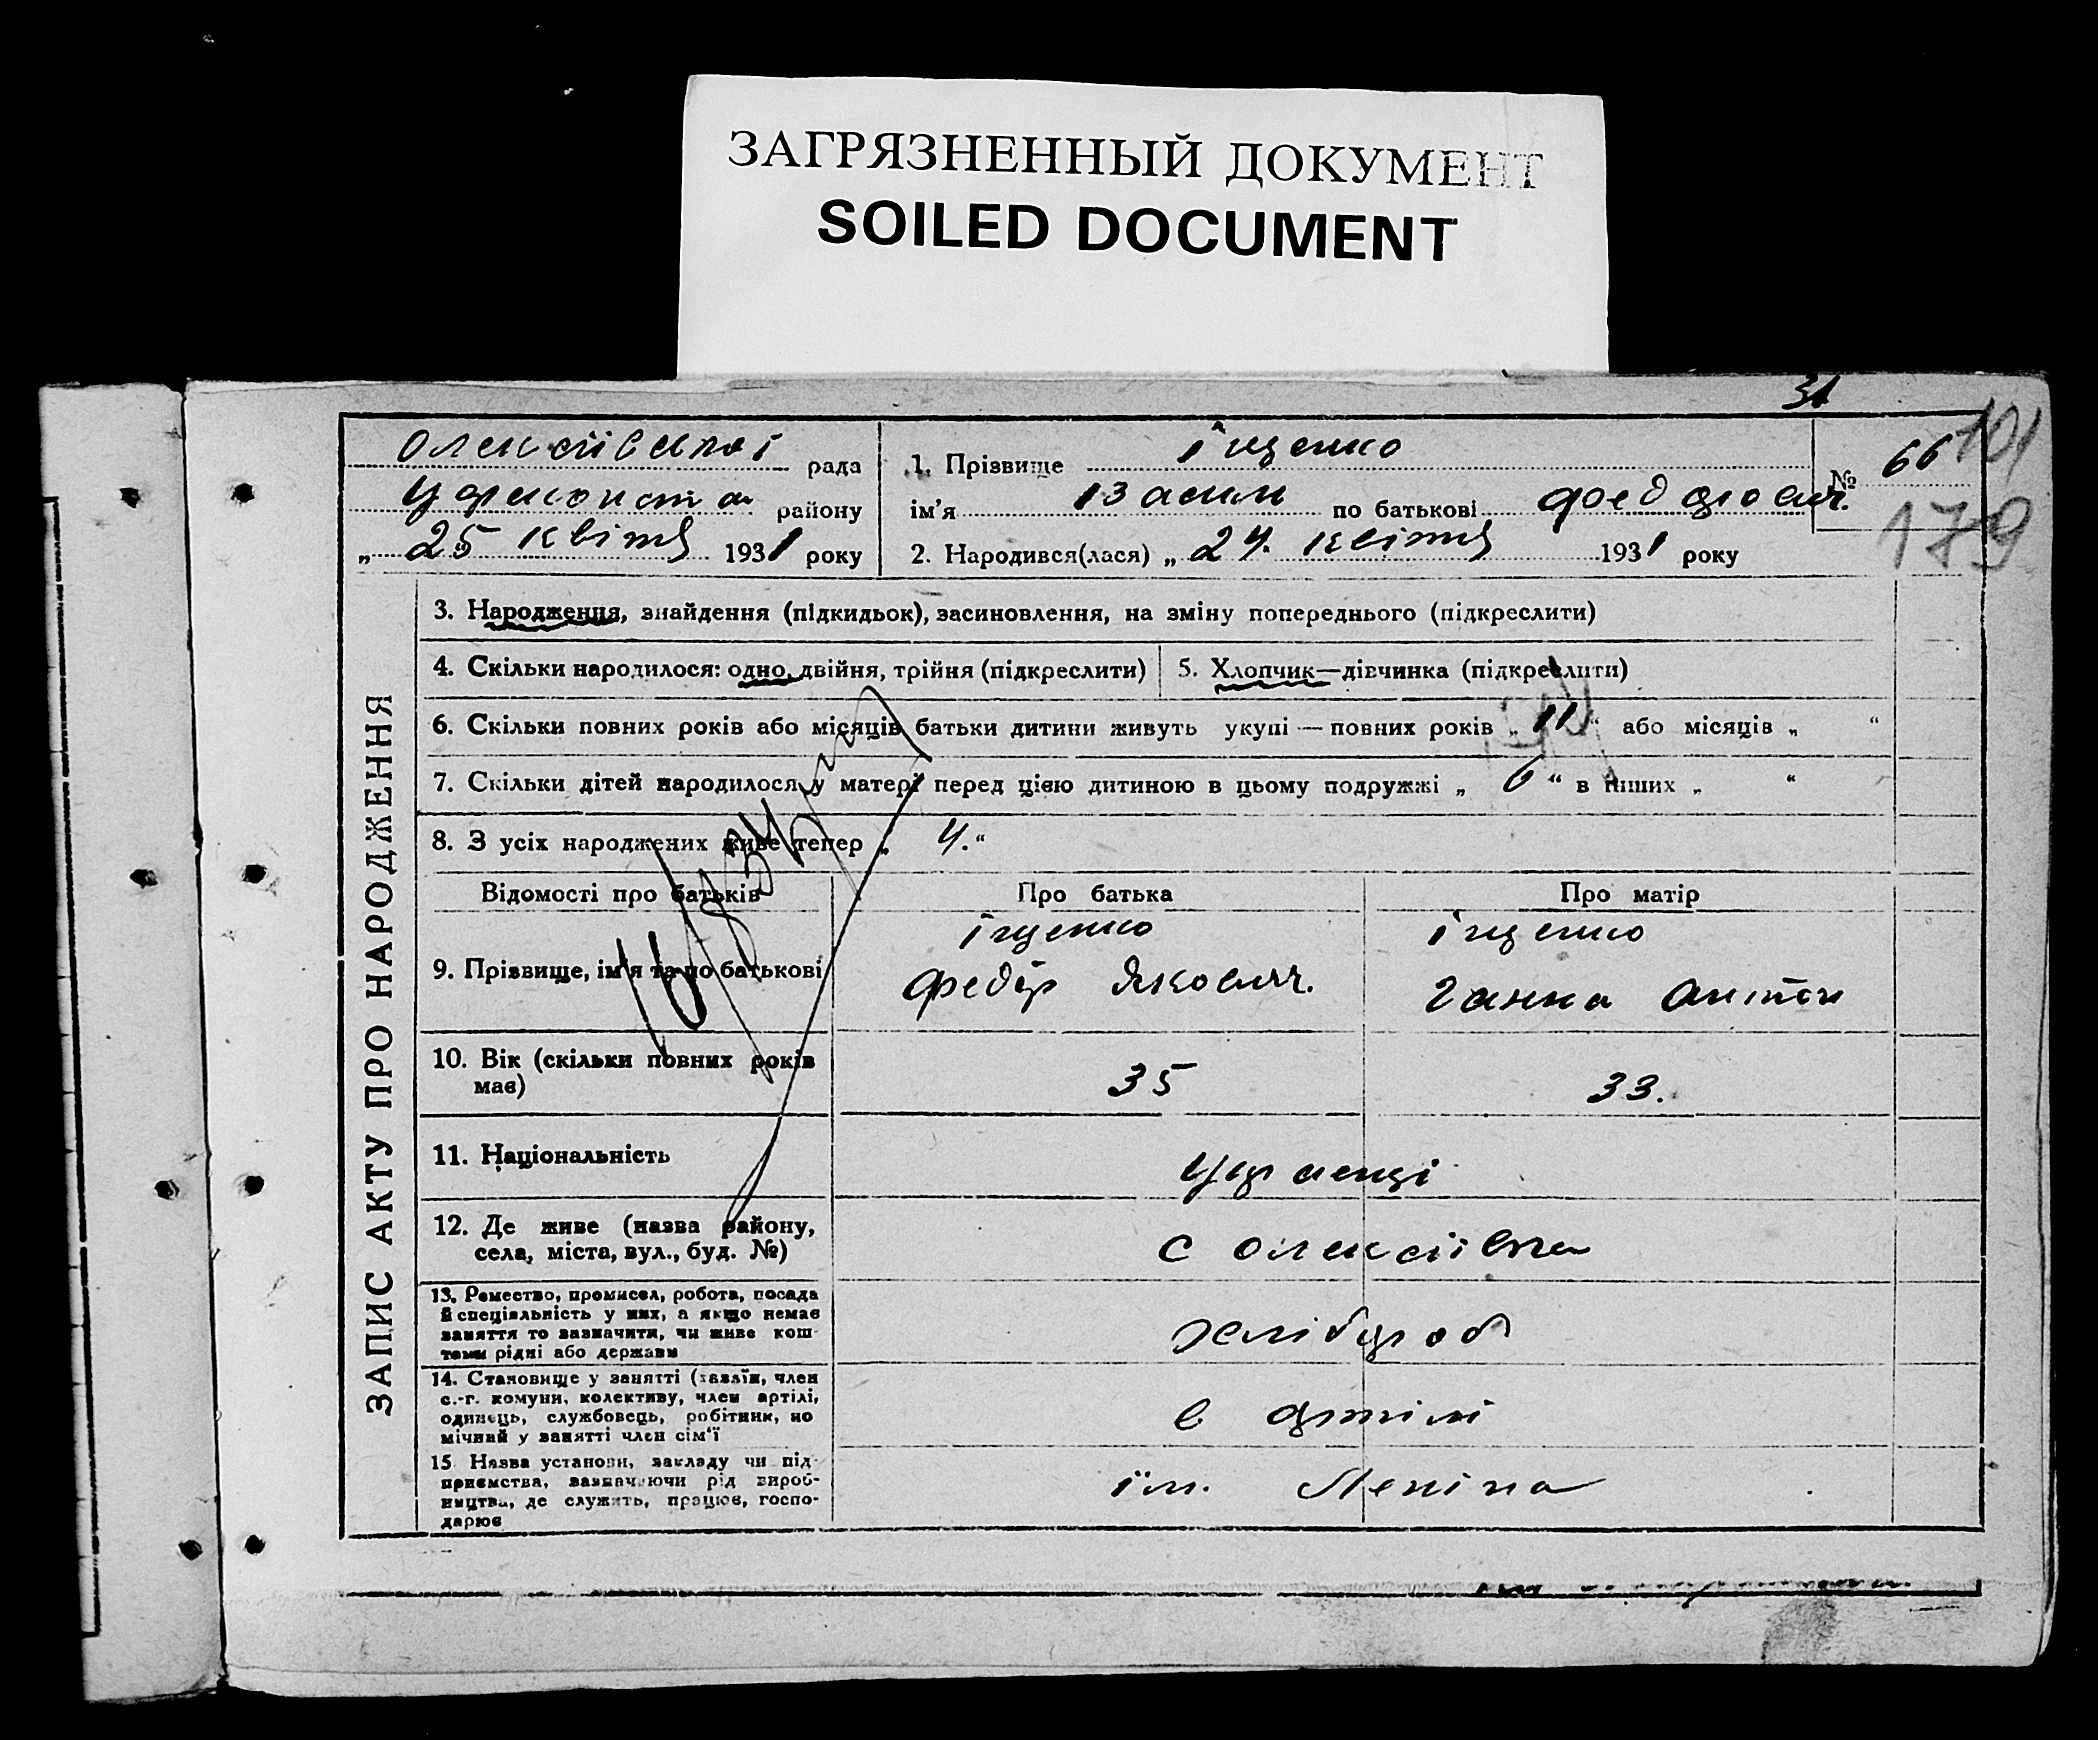 ЗАГРЯЗНЕННЫЙ ДОКУМЕНТ
SOILED DOCUMENT
31
101
179
Олексіївської рада
району
„ 25 “ квітня 1931 року
1. Прізвище Іщенко
№ 66
ім’я по батькові
2. Народився(лася) „ 24. квітня 1931 року
ЗАПИС АКТУ ПРО НАРОДЖЕННЯ
3. Народження, знайдення (підкидьок), засиновлення, на зміну попереднього (підкреслити)
4. Скільки народилося: одно, двійня, трійня (підкреслити)
5. Хлопчик—дівчинка (підкреслити)
6. Скільки повних років або місяців батьки дитини живуть укупі — повних років „ 11 “ або місяців „ “
7. Скільки дітей народилося у матері перед цією дитиною в цьому подружжі „ 6 “ в інших „ “
8. З усіх народжених живе тепер „ 4. “
Відомості про батьків Про батька Про матір
9. Прізвище, ім’я та по батькові
Іщенко Федір Якович.
Іщенко Ганна Антон
10. Вік (скільки повних років має)
35 33.
11. Національність
Українці
12. Де живе (назва району,
села, міста, вул., буд. №)
с Олексіївка
13. Ремество, промисел, робота, посада
й спеціяльність у них, а якщо немає
заняття то зазначити, чи живе кош-
тами рідні або держави
хлібороб
14. Становище у занятті (хазяїн, член
с.-г. комуни, колективу, член артілі,
одинець, службовець, робітник, по
мічний у занятті член сім’ї
в артілі
15 Назва установи, закладу чи під-
приємства, зазначаючи рід вироб-
ництва, де служить, працює, госпо-
дарює
ім. Леніна